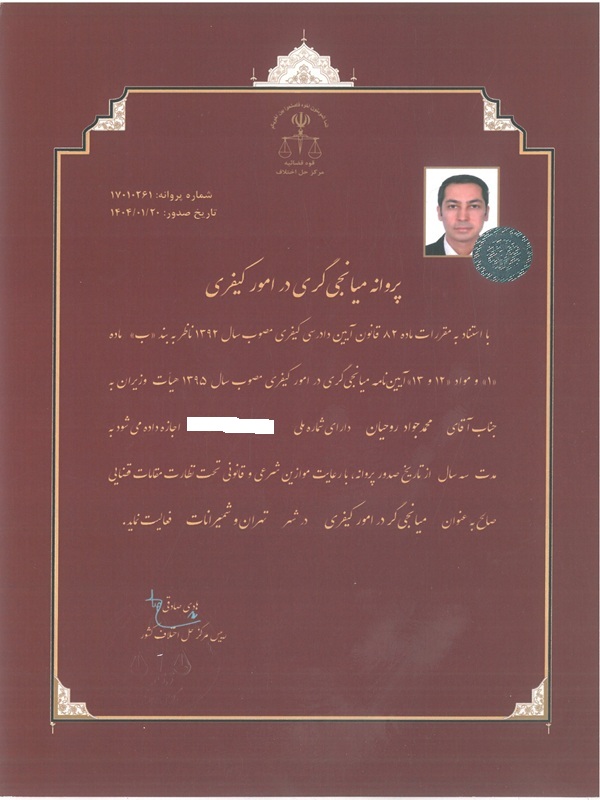 قوه قضائیه
مرکز حل اختلاف
شماره پروانه: ۱۷۰۱۰۲۶۱
تاریخ صدور: ۱۴۰۴/۰۱/۲۰
پروانه میانجی‌گری در امور کیفری
با استناد به مقررات ماده ۸۲ قانون آیین دادرسی کیفری مصوب سال ۱۳۹۲ ناظر به بند «ب» ماده
«۱» و مواد «۱۲ و ۱۳» آیین‌نامه میانجی‌گری در امور کیفری مصوب سال ۱۳۹۵ هیأت وزیران به
جناب آقای محمدجواد روحیان دارای شماره ملی اجازه داده می‌شود به
مدت سه سال از تاریخ صدور پروانه، با رعایت موازین شرعی و قانونی تحت نظارت مقامات قضایی
صالح به عنوان میانجی‌گر در امور کیفری در شهر تهران و شمیرانات فعالیت نماید.
هادی صادقی
رییس مرکز حل اختلاف کشور